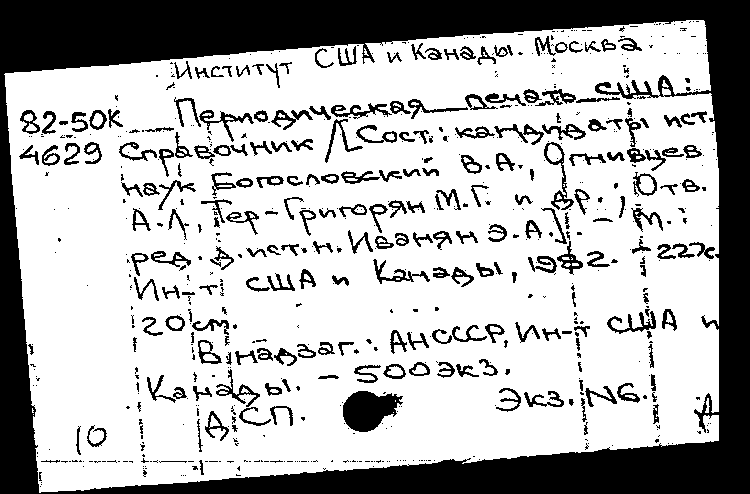 Институт США и Канады. Москва.
82-50К Периодическая печать США:
4629 Справочник /[Сост.: кандидаты ист.
наук Богословский В.А., Огнивцев
А.Л., Тер-Григорян М.Г. и др.; Отв.
ред. д.ист.н. Иванян Э.А.]. - М.:
Ин-т США и Канады, 1982. - 227с.
20см.
В надзаг.: АНСССР, Ин-т США и
Канады. - 500экз.
ДСП. Экз. N6.
10 А